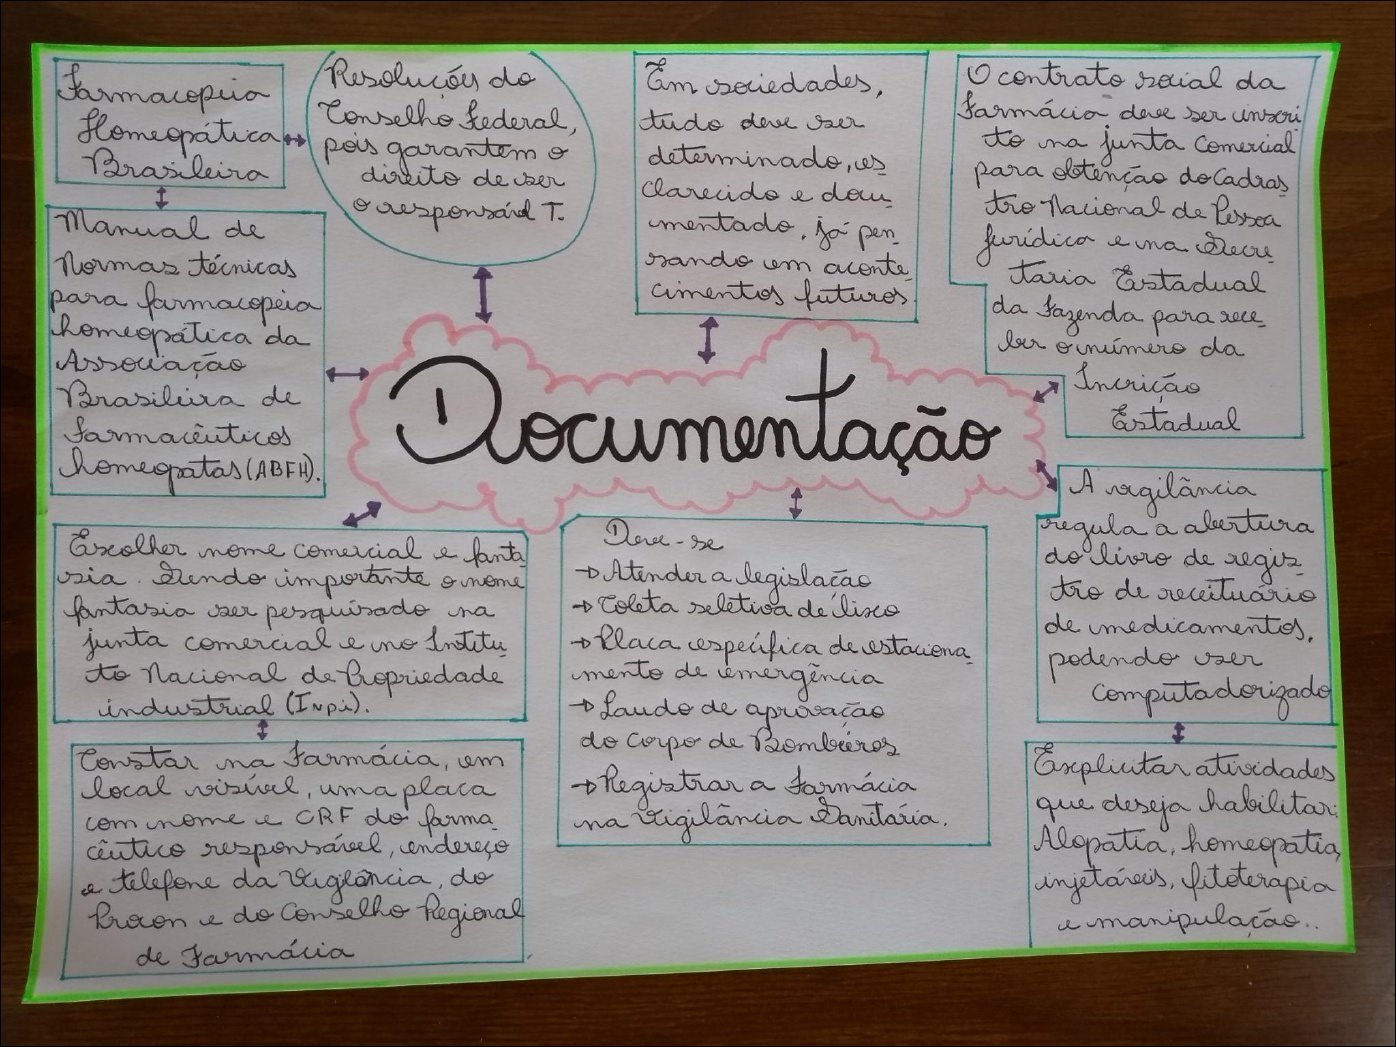 Farmacopeia
Homeopática
Brasileira
Resoluções do
Conselho Federal,
pois garantem o
direito de ser
o responsável T.
Em sociedades,
tudo deve ser
determinado, es
clarecido e docu
mentado, já pen-
sando em aconte-
cimentos futuros.
O contrato social da
Farmácia deve ser inscri
to na junta comercial
para obtenção do Cadras
tro Nacional de Pessoa
jurídica e na Secre-
taria Estadual
da Fazenda para rece-
ber o número da
Incrição
Estadual
Manual de
Normas técnicas
para farmacopeia
homeopática da
Associação
Brasileira de
Farmacêuticos
homeopatas (ABFH).
Documentação
A vigilância
regula a abertura
do livro de regis-
tro de receituário
de medicamentos,
podendo ser
computadorizado
Escolher nome comercial e fanta
sia. Sendo importante o nome
fantasia ser pesquisado na
junta comercial e no Institu-
to Nacional de Propriedade
industrial (Inpi).
Deve-se
→ Atender a legislação
→ Coleta seletiva de lisco
→ Placa específica de estaciona-
mento de emergência
→ Laudo de aprovação
do Corpo de Bombeiros
→ Registrar a Farmácia
na Vigilância Sanitária.
Constar na Farmácia, em
local visível, uma placa
com nome e CRF do farma
cêutico responsável, endereço
e telefone da Vigilância, do
Procon e do Conselho Regional
de Farmácia
Explicitar atividades
que deseja habilitar:
Alopatia, homeopatia,
injetáveis, fitoterapia
e manipulação..